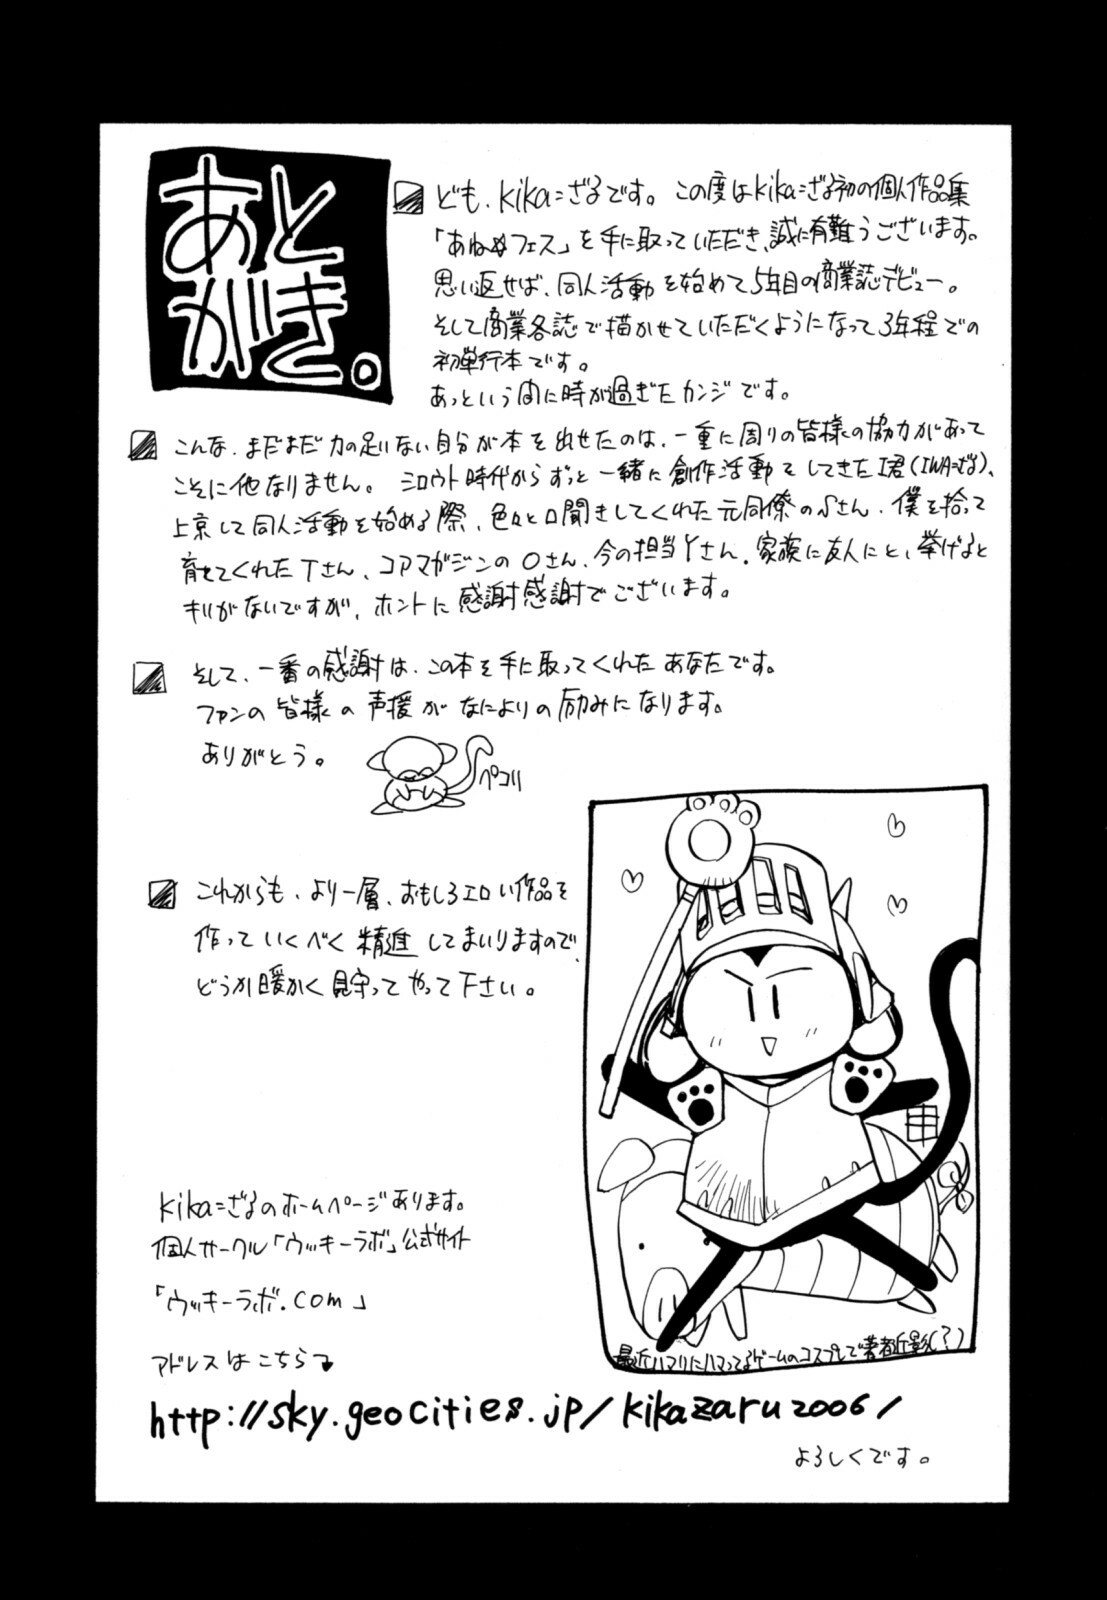 あとがき。
ども、kika=ざるです。この度はkika=ざる初の個人作品集
「あねめフェス」を手に取っていただき、誠に有難うございます。
思い返せば、同人活動を始めて5年目の商業誌デビュー。
そして商業各誌で描かせていただくようになって3年程での
初単行本です。
あっという間に時が過ぎたカンジです。
こんな、まだまだ力の足りない自分が本を出せたのは、一重に周りの皆様の協力があって
こそに他なりません。シロウト時代からずっと一緒に創作活動をしてきたI君(IWA=ざる)、
上京して同人活動を始める際、色々と口聞きしてくれた元同僚のSさん、僕を拾って
育ててくれたTさん、コアマガジンのOさん、今の担当Yさん、家族に友人にと、挙げると
キリがないですが、ホントに感謝感謝でございます。
そして、一番の感謝は、この本を手に取ってくれたあなたです。
ファンの皆様の声援がなによりの励みになります。
ありがとう。
ペコリ
これからも、より一層、おもしろエロい作品を
作っていくべく精進してまいりますので、
どうか暖かく見守ってやって下さい。
kika=ざるのホームページあります。
個人サークル「ウッキーラボ」公式サイト
「ウッキーラボ.com」
アドレスはこちら
http://sky.geocities.jp/kikazaru2006/
よろしくです。
最近ハマりにハマってるゲームのコスプレで著者近影(?)